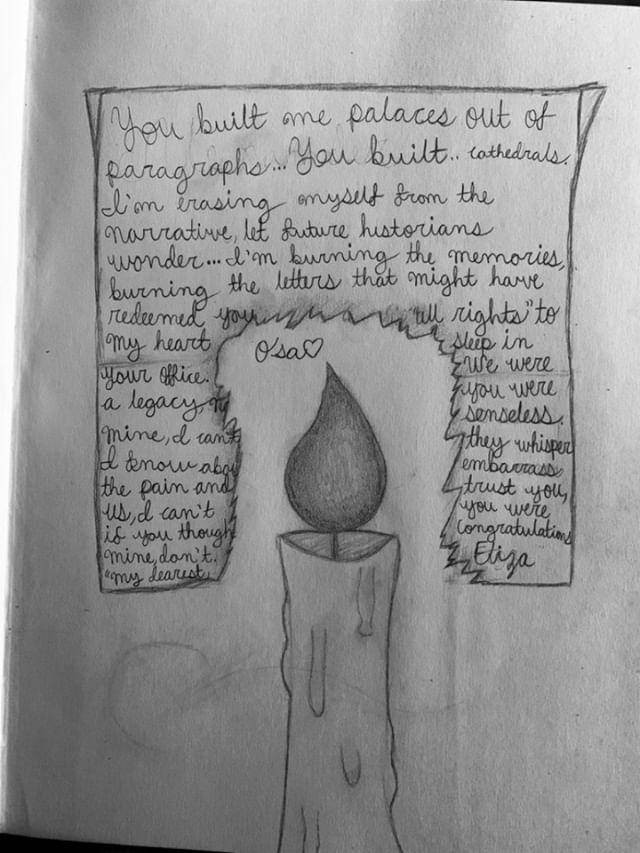 You built me palaces out of
paragraphs... You built.. cathedrals.
I'm erasing myself from the
narrative, let future historians
wonder... I'm burning the memories,
burning the letters that might have
redeemed you. "all rights" to
my heart sleep in
O'sa♡
your office. We were
a legacy, you were
mine, I can't senseless.
I know abo they whisper
the pain and embarrass
us, I can't trust you,
if you though you were
mine, don't. congratulations
"my dearest, Eliza